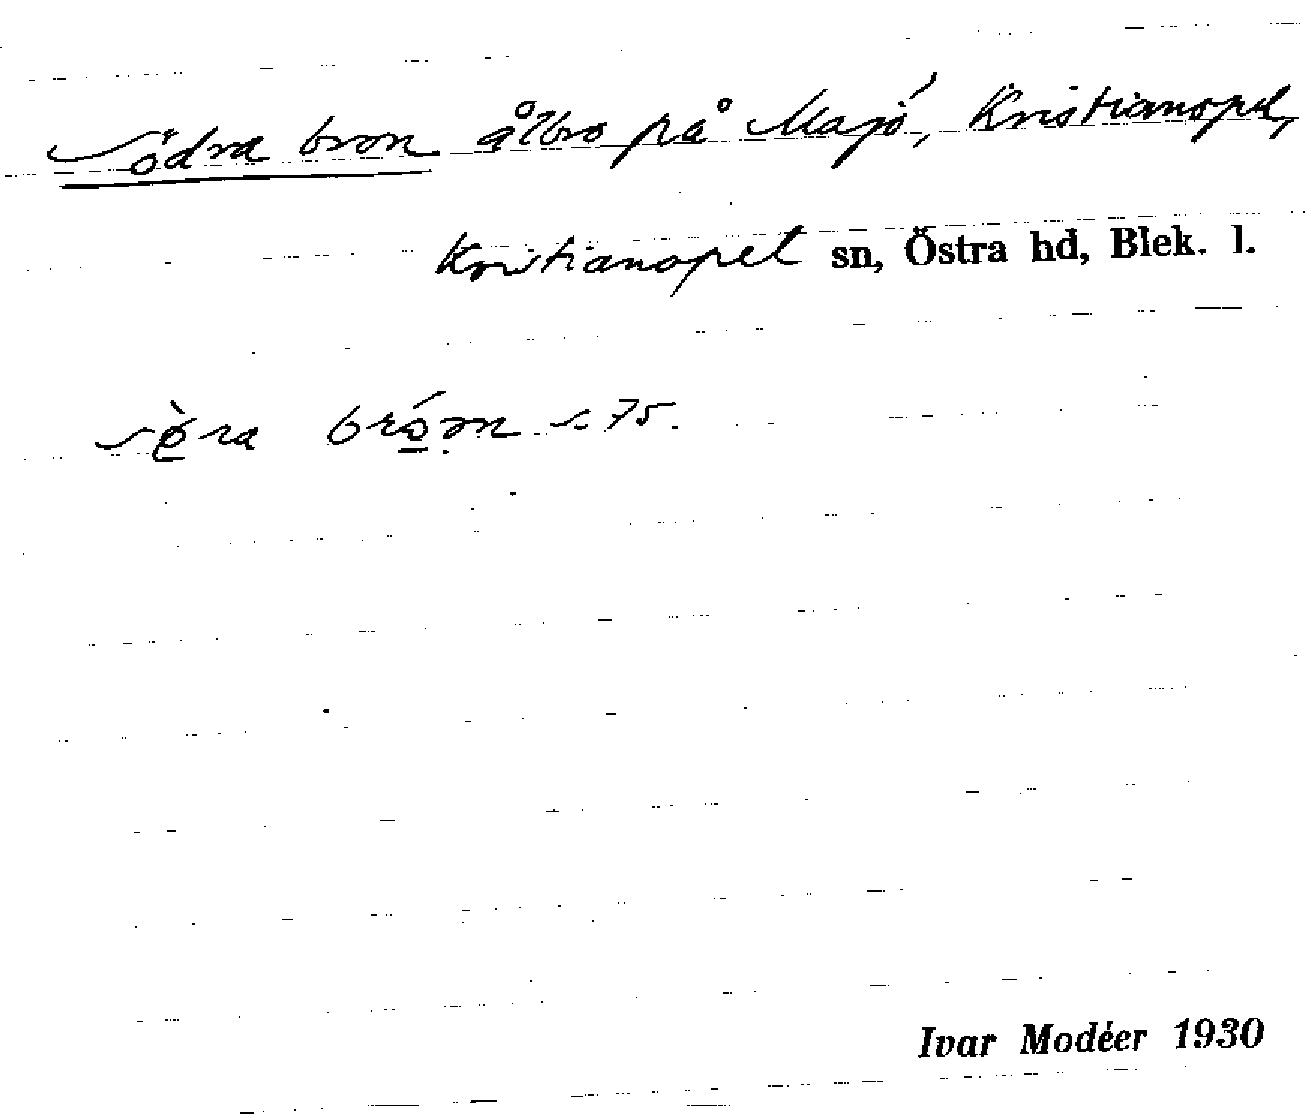 Södra bron ålbro på Majö, Kristianopel,
Kristianopel sn, Östra hd, Blek. l.
75.
Ivar Modéer 1930